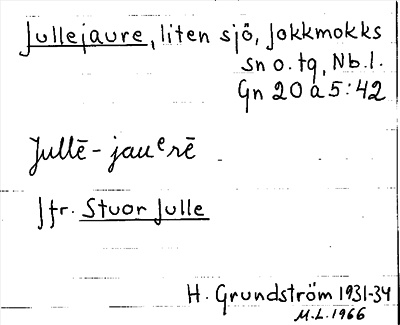 Jullejaure, liten sjö, Jokkmokks
sn o. tg, Nb.l.
Gn 20 a 5:42
Jullē - jauᵉrē
Jfr. Stuor Julle
H. Grundström 1931-34
M.L. 1966